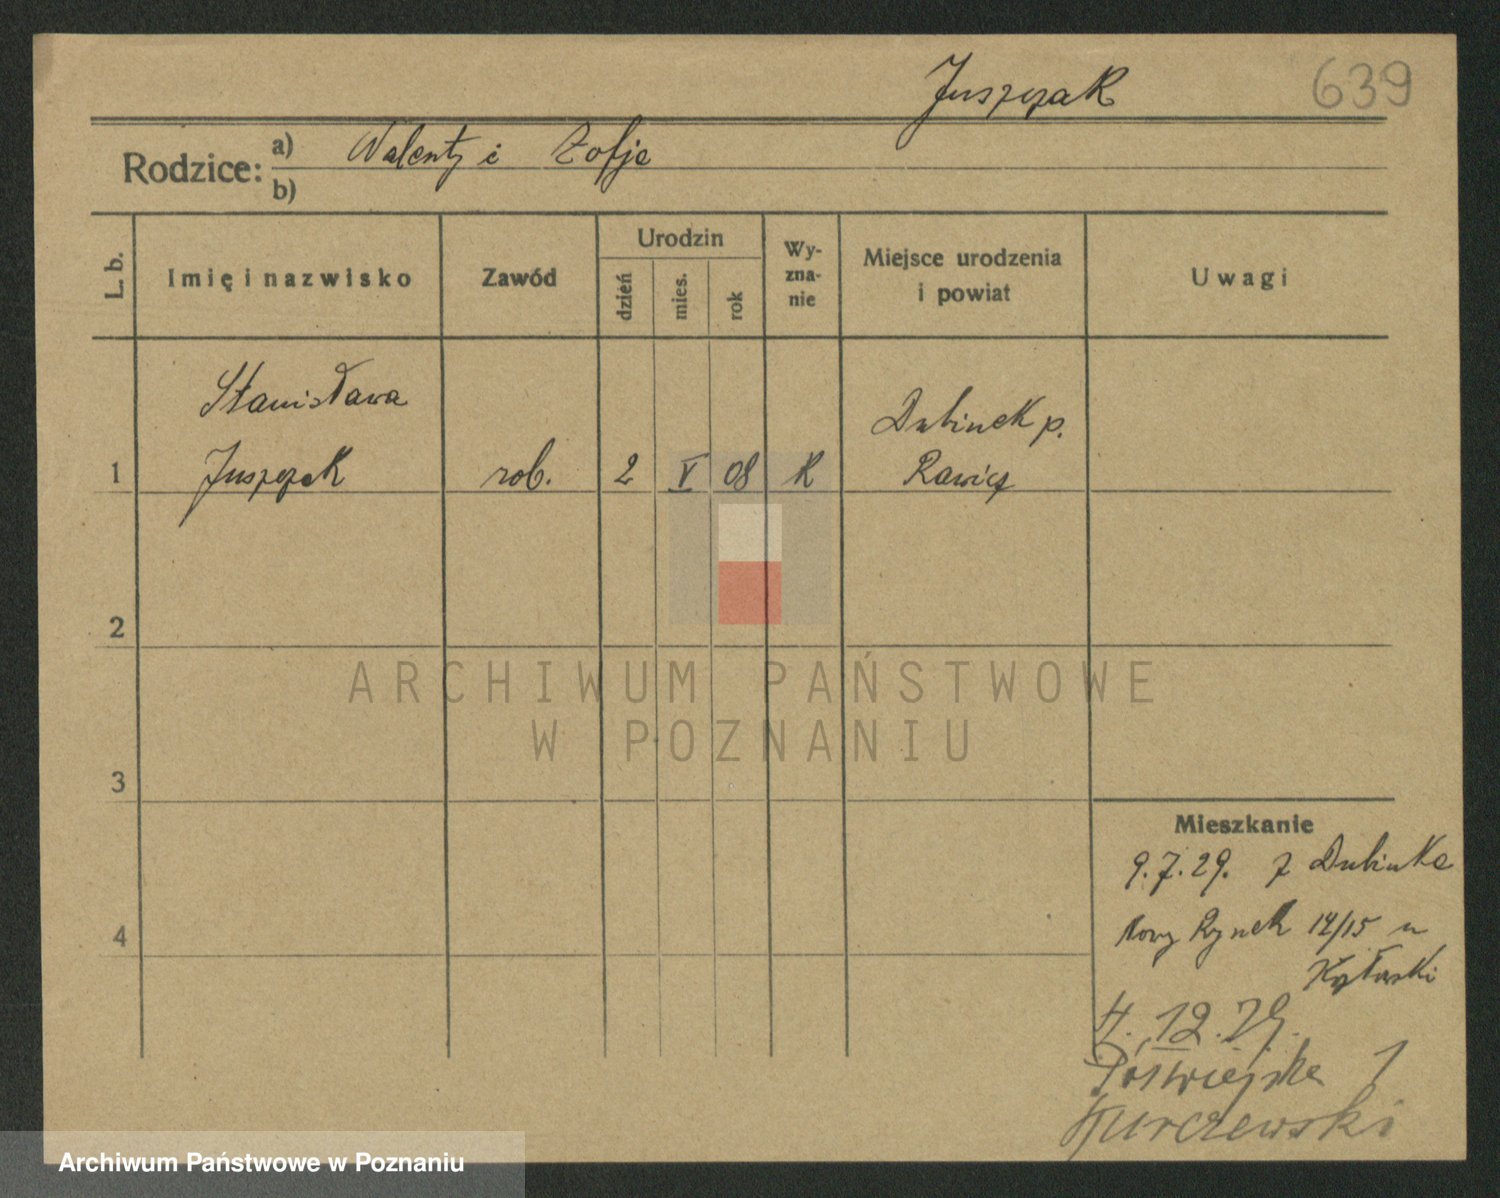 Juszczak
639
Rodzice:
a) Walenty i Zofja
b)
L. b.
Imię i nazwisko
Zawód
Urodzin
dzień
mies.
rok
Wy-
zna-
nie
Miejsce urodzenia
i powiat
Uwagi
Stanisława
Dubinek p.
1 Juszczak rob. 2 V 08 K Rawicz
2
3
4
Mieszkanie
9.7.29. z Dubinka
Nowy Rynek 14/15 u
4. 12. 29.
Półwiejska 1
Kurczewski
ARCHIWUM PAŃSTWOWE
W POZNANIU
Archiwum Państwowe w Poznaniu